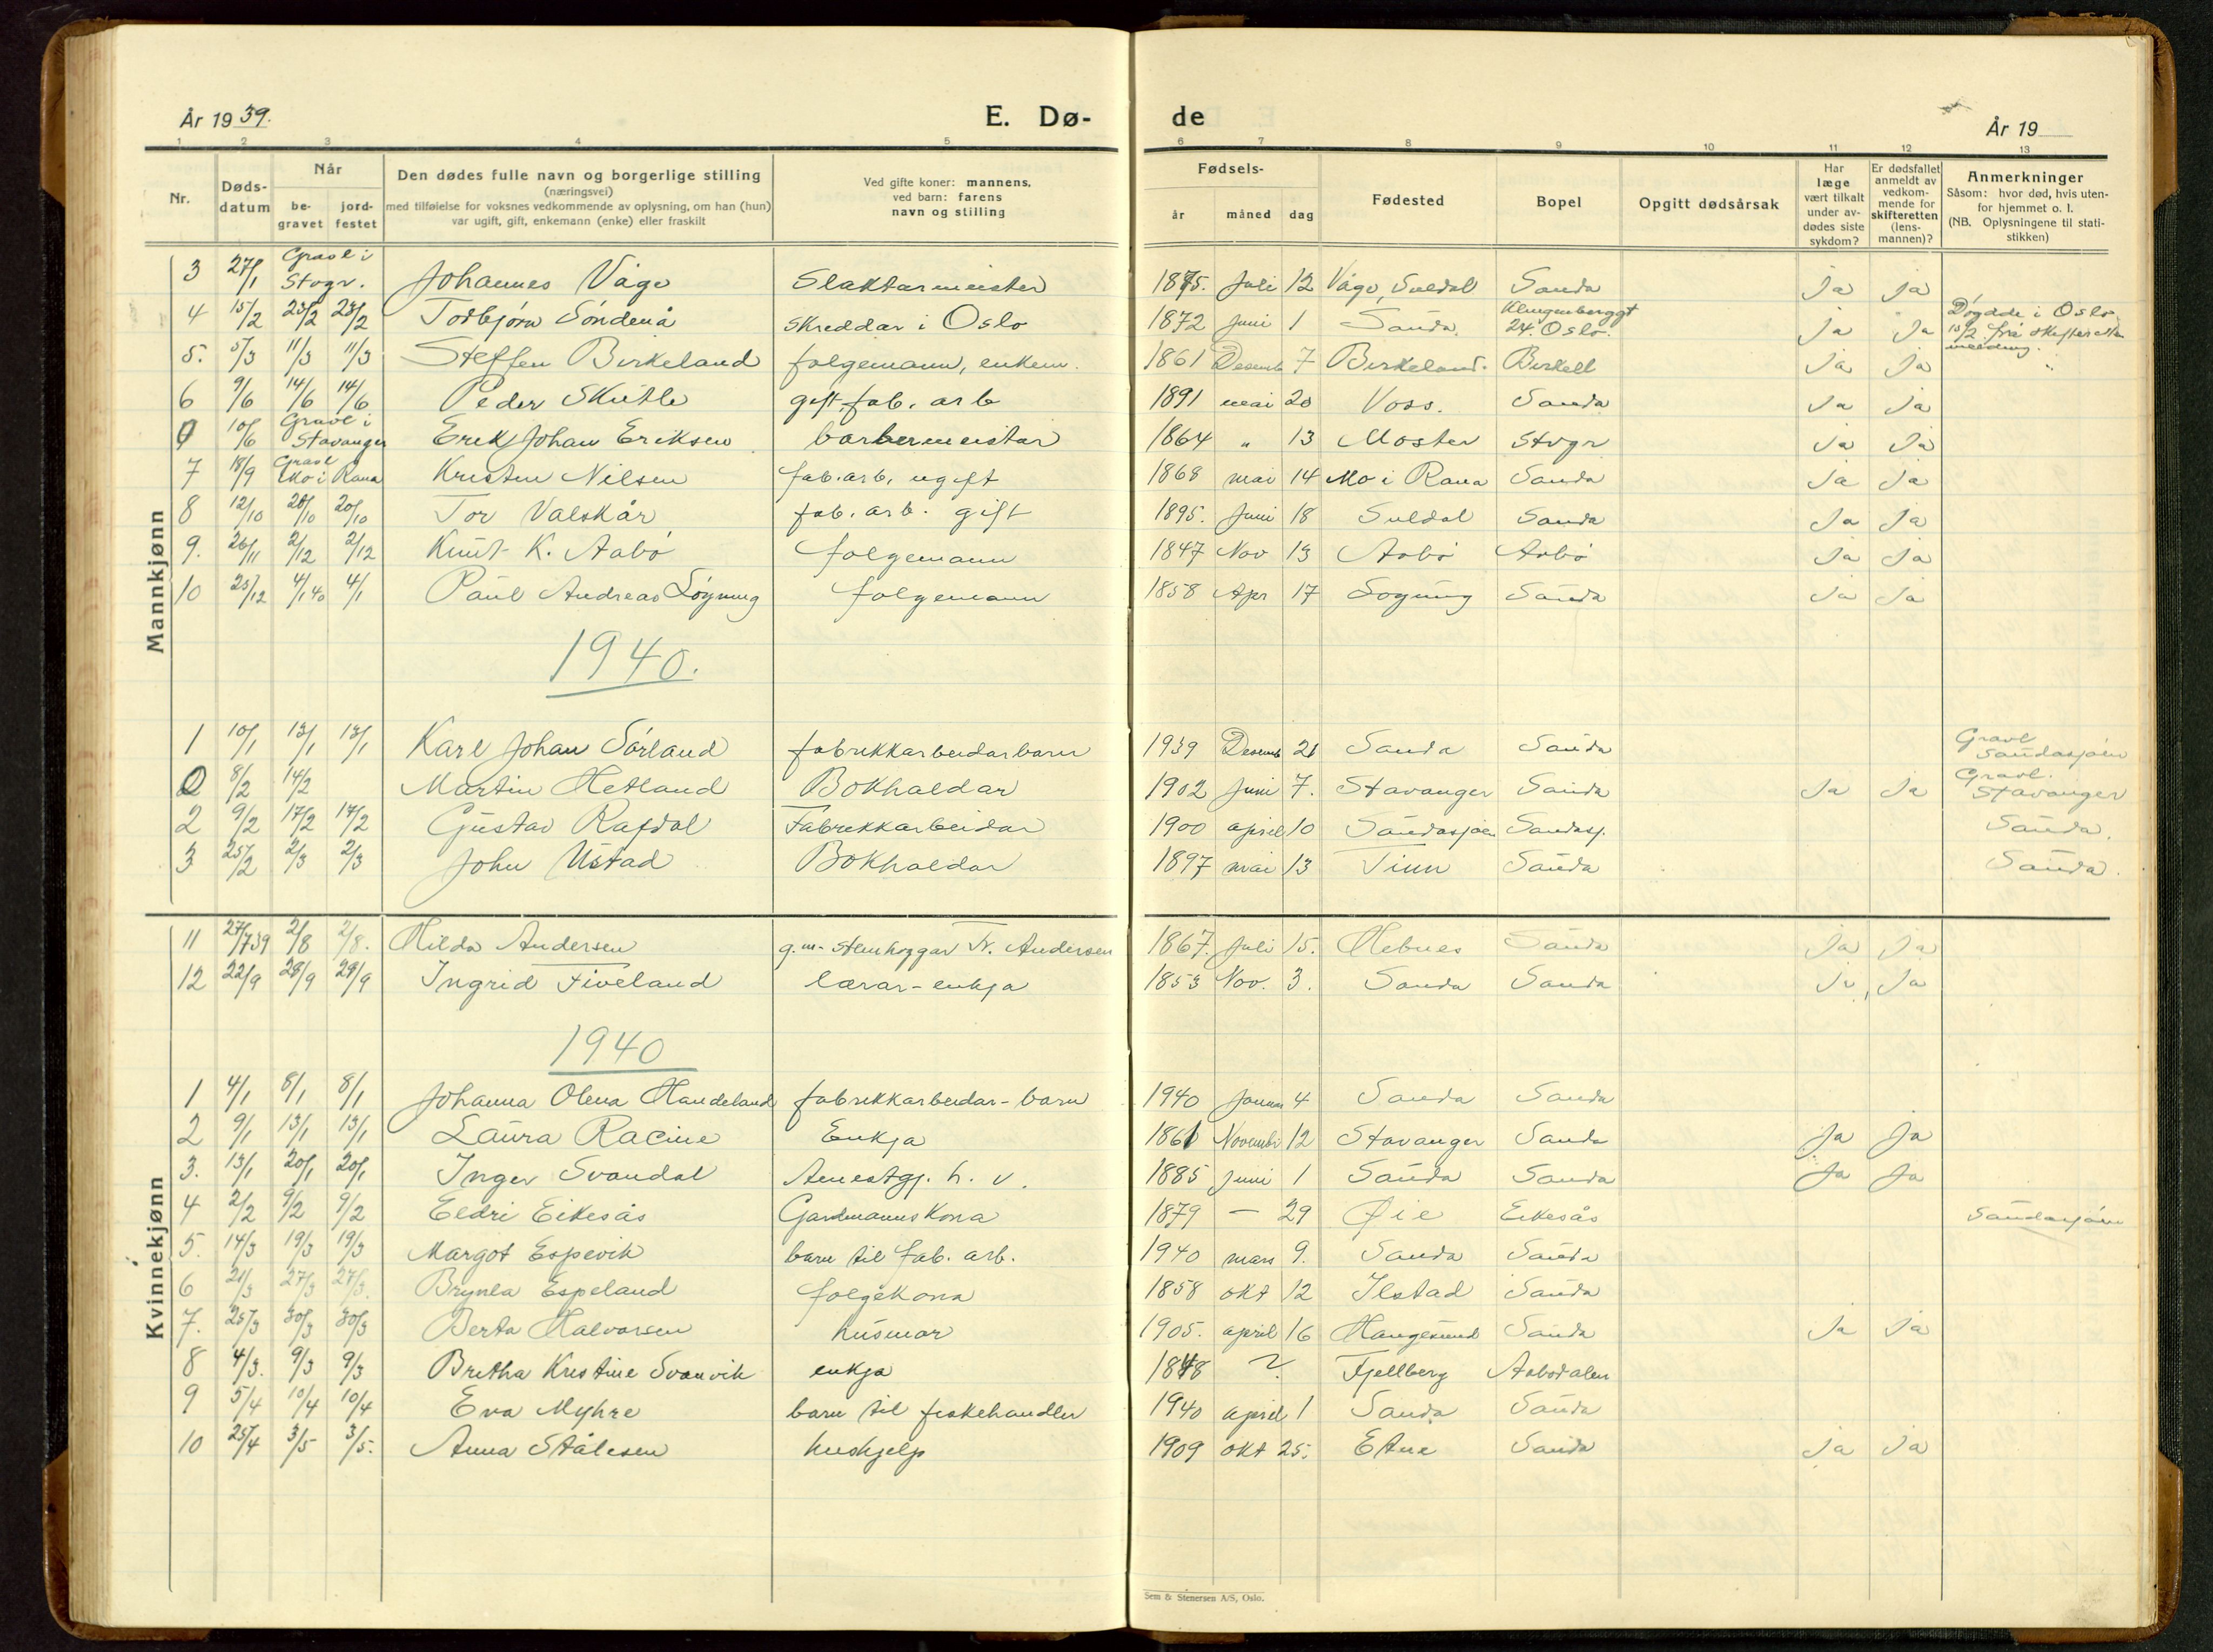 År 1939.
E. Dø-
de
År 19
1 2 3 4 5 6 7 8 9 10 11 12 13
Nr.
Døds-
datum
Når
be-
gravet
jord-
festet
Den dødes fulle navn og borgerlige stilling
(næringsvei)
med tilføielse for voksnes vedkommende av oplysning, om han (hun)
var ugift, gift, enkemann (enke) eller fraskilt
Ved gifte koner: mannens,
ved barn: farens
navn og stilling
Fødsels-
år måned dag
Fødested
Bopel
Opgitt dødsårsak
Har
læge
vært tilkalt
under av-
dødes siste
sykdom?
Er dødsfallet
anmeldt av
vedkom-
mende for
skifteretten
(lens-
mannen)?
Anmerkninger
Såsom: hvor død, hvis uten-
for hjemmet o. l.
(NB. Oplysningene til stati-
stikken)
Mannkjønn
3 27/1 Gravl i Stvgr. Johannes Våge Slaktarmeister 1875. Juli 12 Våge, Suldal Sauda Ja Ja
4 15/2 23/2 23/2 Torbjørn Söndenå Skreddar i Oslo 1872 Juni 1 Sauda. Klingenberggt 24. Oslo. Ja Ja Døydde i Oslo 15/2 frå skifteretten melding.
5. 5/3 11/3 11/3 Steffen Birkeland folgemann, enkem. 1861 Desemb 7 Birkeland. Birkell Ja Ja "
6 9/6 14/6 14/6 Peder Skutle gift, fab. arb 1891 mai 20 Voss. Sauda Ja Ja
0 10/6 Gravl i Stavanger Erik Johan Eriksen barbermeistar 1864 " 13 Moster Stvgr Ja Ja
7 18/9 Gravl Mo i Rana Kristen Nilsen fab.arb. ugift 1868 mai 14 Mo i Rana Sauda Ja Ja
8 12/10 20/10 20/10 Tor Valskår fab. arb. gift 1895. Juni 18 Suldal Sauda Ja Ja
9. 26/11 2/12 2/12 Knut K. Aabø folgemann 1847 Nov 13 Aabø Aabø Ja Ja
10 25/12 4/1 40 4/1 Paul Andreas Løyning folgemann 1858 Apr 17 Løyning Sauda Ja Ja
1940.
1 10/1 13/1 13/1 Karl Johan Sørland fabrikkarbeidarbarn 1939 Desemb 21 Sauda Sauda Gravl Saudasjøen
0 8/2 14/2 Martin Hetland Bokhaldar 1902 Juni 7. Stavanger Sauda Ja Ja Gravl. Stavanger
2 9/2 17/2 17/2 Gustav Rafdal Fabrikkarbeidar 1900 april 10 Saudasjøen Saudasj. Sauda.
3 25/2 2/3 2/3 John Ustad Bokhaldar 1897 mai 13 Tinn Sauda Sauda.
Kvinnekjønn
11 27/7 39 2/8 2/8. Hilda Andersen g.m. stenhoggar N. Andersen 1867. Juli 15. Hebnes Sauda Ja Ja
12 22/9 28/9 29/9 Ingrid Fiveland lærar-enkja 1853 Nov. 3. Sauda Sauda Ja Ja
1940
1 4/1 8/1 8/1 Johanna Olena Handeland fabrikkarbeidar-barn 1940 Januar 4 Sauda Sauda
2 9/1 13/1 13/1 Laura Racine Enkja 1861 Novembr 12 Stavanger Sauda Ja Ja
3. 13/1 20/1 20/1 Inger Svandal h. v. 1885 Juni 1 Sauda Sauda Ja Ja
4 2/2 9/2 9/2 Eldri Eikesås Gardmannskona 1879 — 29 Øie Eikesås Saudasjøen
5. 14/3 19/3 19/3 Margot Espevik barn til fab. arb. 1940 mars 9. Sauda Sauda
6 21/3 27/3 27/3. Brynla Espeland folgekona 1858 okt 12 Ilstad Sauda
7. 25/3 30/3 30/3 Berta Halvorsen husmor 1905. april 16 Haugesund Sauda Ja Ja
8 4/3. 9/3 9/3 Bretha Kristine Svanvik enkja 1848 ? Fjellberg Aabødalen
9 5/4 10/4 10/4 Eva Myhre barn til fiskehandler 1940 april 1 Sauda Sauda
10 25/4 3/5 3/5. Anna Stålesen hushjelp 1909 okt 25. Etne Sauda Ja Ja
Sem & Stenersen A/S, Oslo.